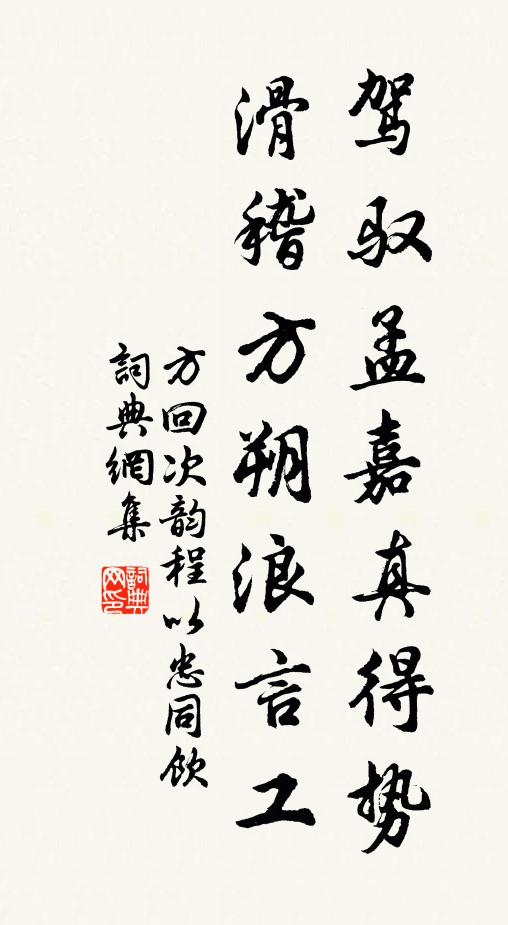 驾驭孟嘉真得势
滑稽方朔浪言工
方回次韵程以忠同饮
詞典網集
詞典网印